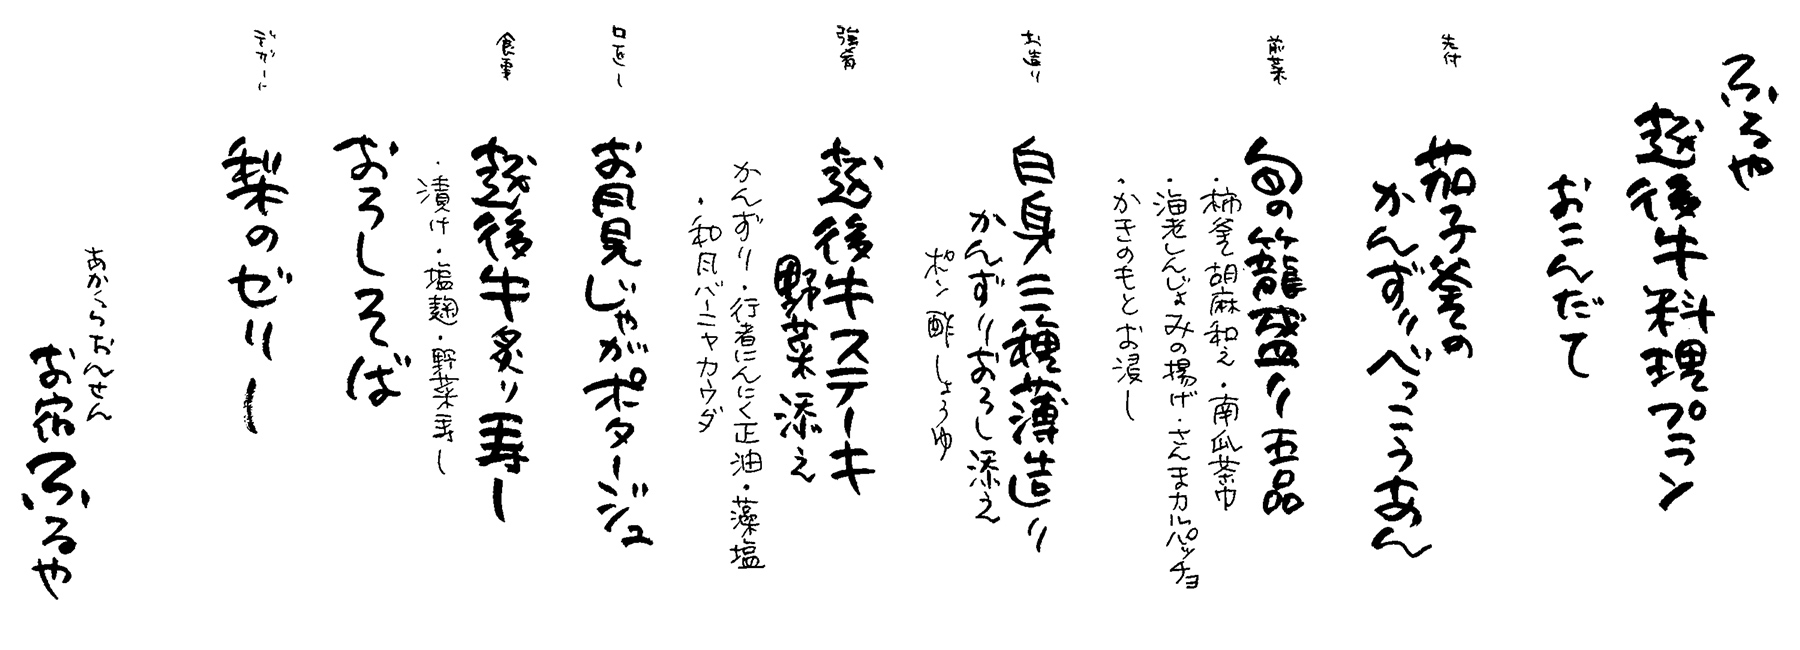 ふるや
越後牛料理プラン
おこんだて
先付
茄子釜の
かんずりべっこうあん
前菜
旬の籠盛り五品
・柿釜胡麻和え・南瓜茶巾
・海老しんじょみの揚げ・さんまカルパッチョ
・かきのもとお浸し
お造り
白身三種薄造り
かんずりおろし添え
ポン酢しょうゆ
強肴
越後牛ステーキ
野菜添え
かんずり・行者にんにく正油・藻塩
・和風バーニャカウダ
口直し
お月見じゃがポタージュ
食事
越後牛炙り寿し
・漬け・塩麹・野菜寿し
おろしそば
デザート
梨のゼリー
あからおんせん
お宿ふるや